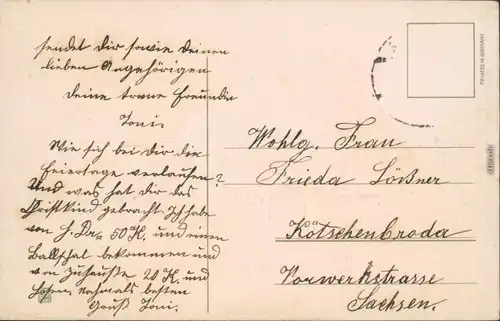 sendet dir sowie deinen
lieben Angehörigen
deine treue Freundin
Toni.
Wie sich bei dir die
Feiertage verlaufen?
Und was hat dir das
Christkind gebracht. Ich habe
von H. Dr. 50 K. und einen
Ballshal bekommen und
von zuhause 20 K. und
nochmals besten
Gruß Toni.
Wohlg. Frau
Frieda Lößner
Kötschenbroda
Vorwerkstrasse
Sachsen.
PRINTED IN GERMANY